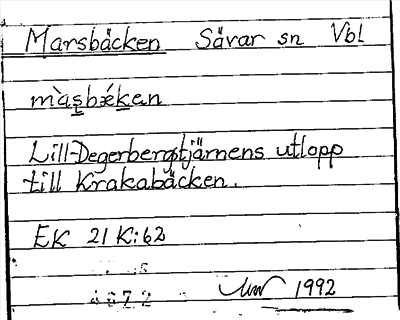 Marsbäcken Sävar sn Vbl
mà̱ṣbǽken
Lill-Degerbergstjärnens utlopp
till Krakabäcken.
EK 21 K:62
4672
1992